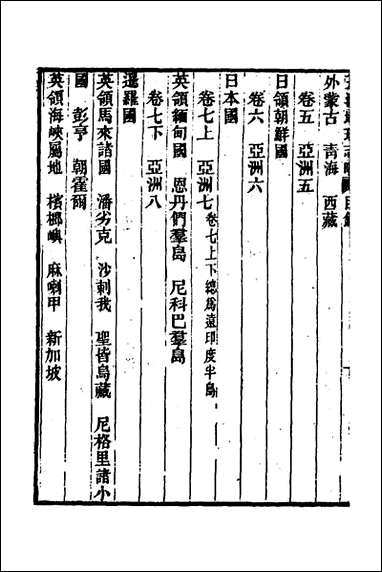 外蒙古 靑海 西藏
卷五 亞洲五
日領朝鮮國
卷六 亞洲六
日本國
卷七上 亞洲七卷七上下總爲遠印度半島
英領緬甸國 恩丹們羣島 尼科巴羣島
卷七下 亞洲八
暹羅國
英領馬來諸國 潘劣克 沙剌我 聖皆島藏 尼格里諸小
國 彭亨 朝霍爾
英領海峽屬地 檳榔嶼 麻喇甲 新加坡